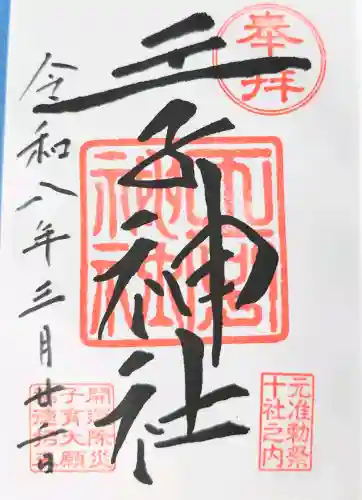 奉拝
王子神社
王子神社
元准勅祭
十社之内
令和八年三月廿二日
開運除災
子育大願